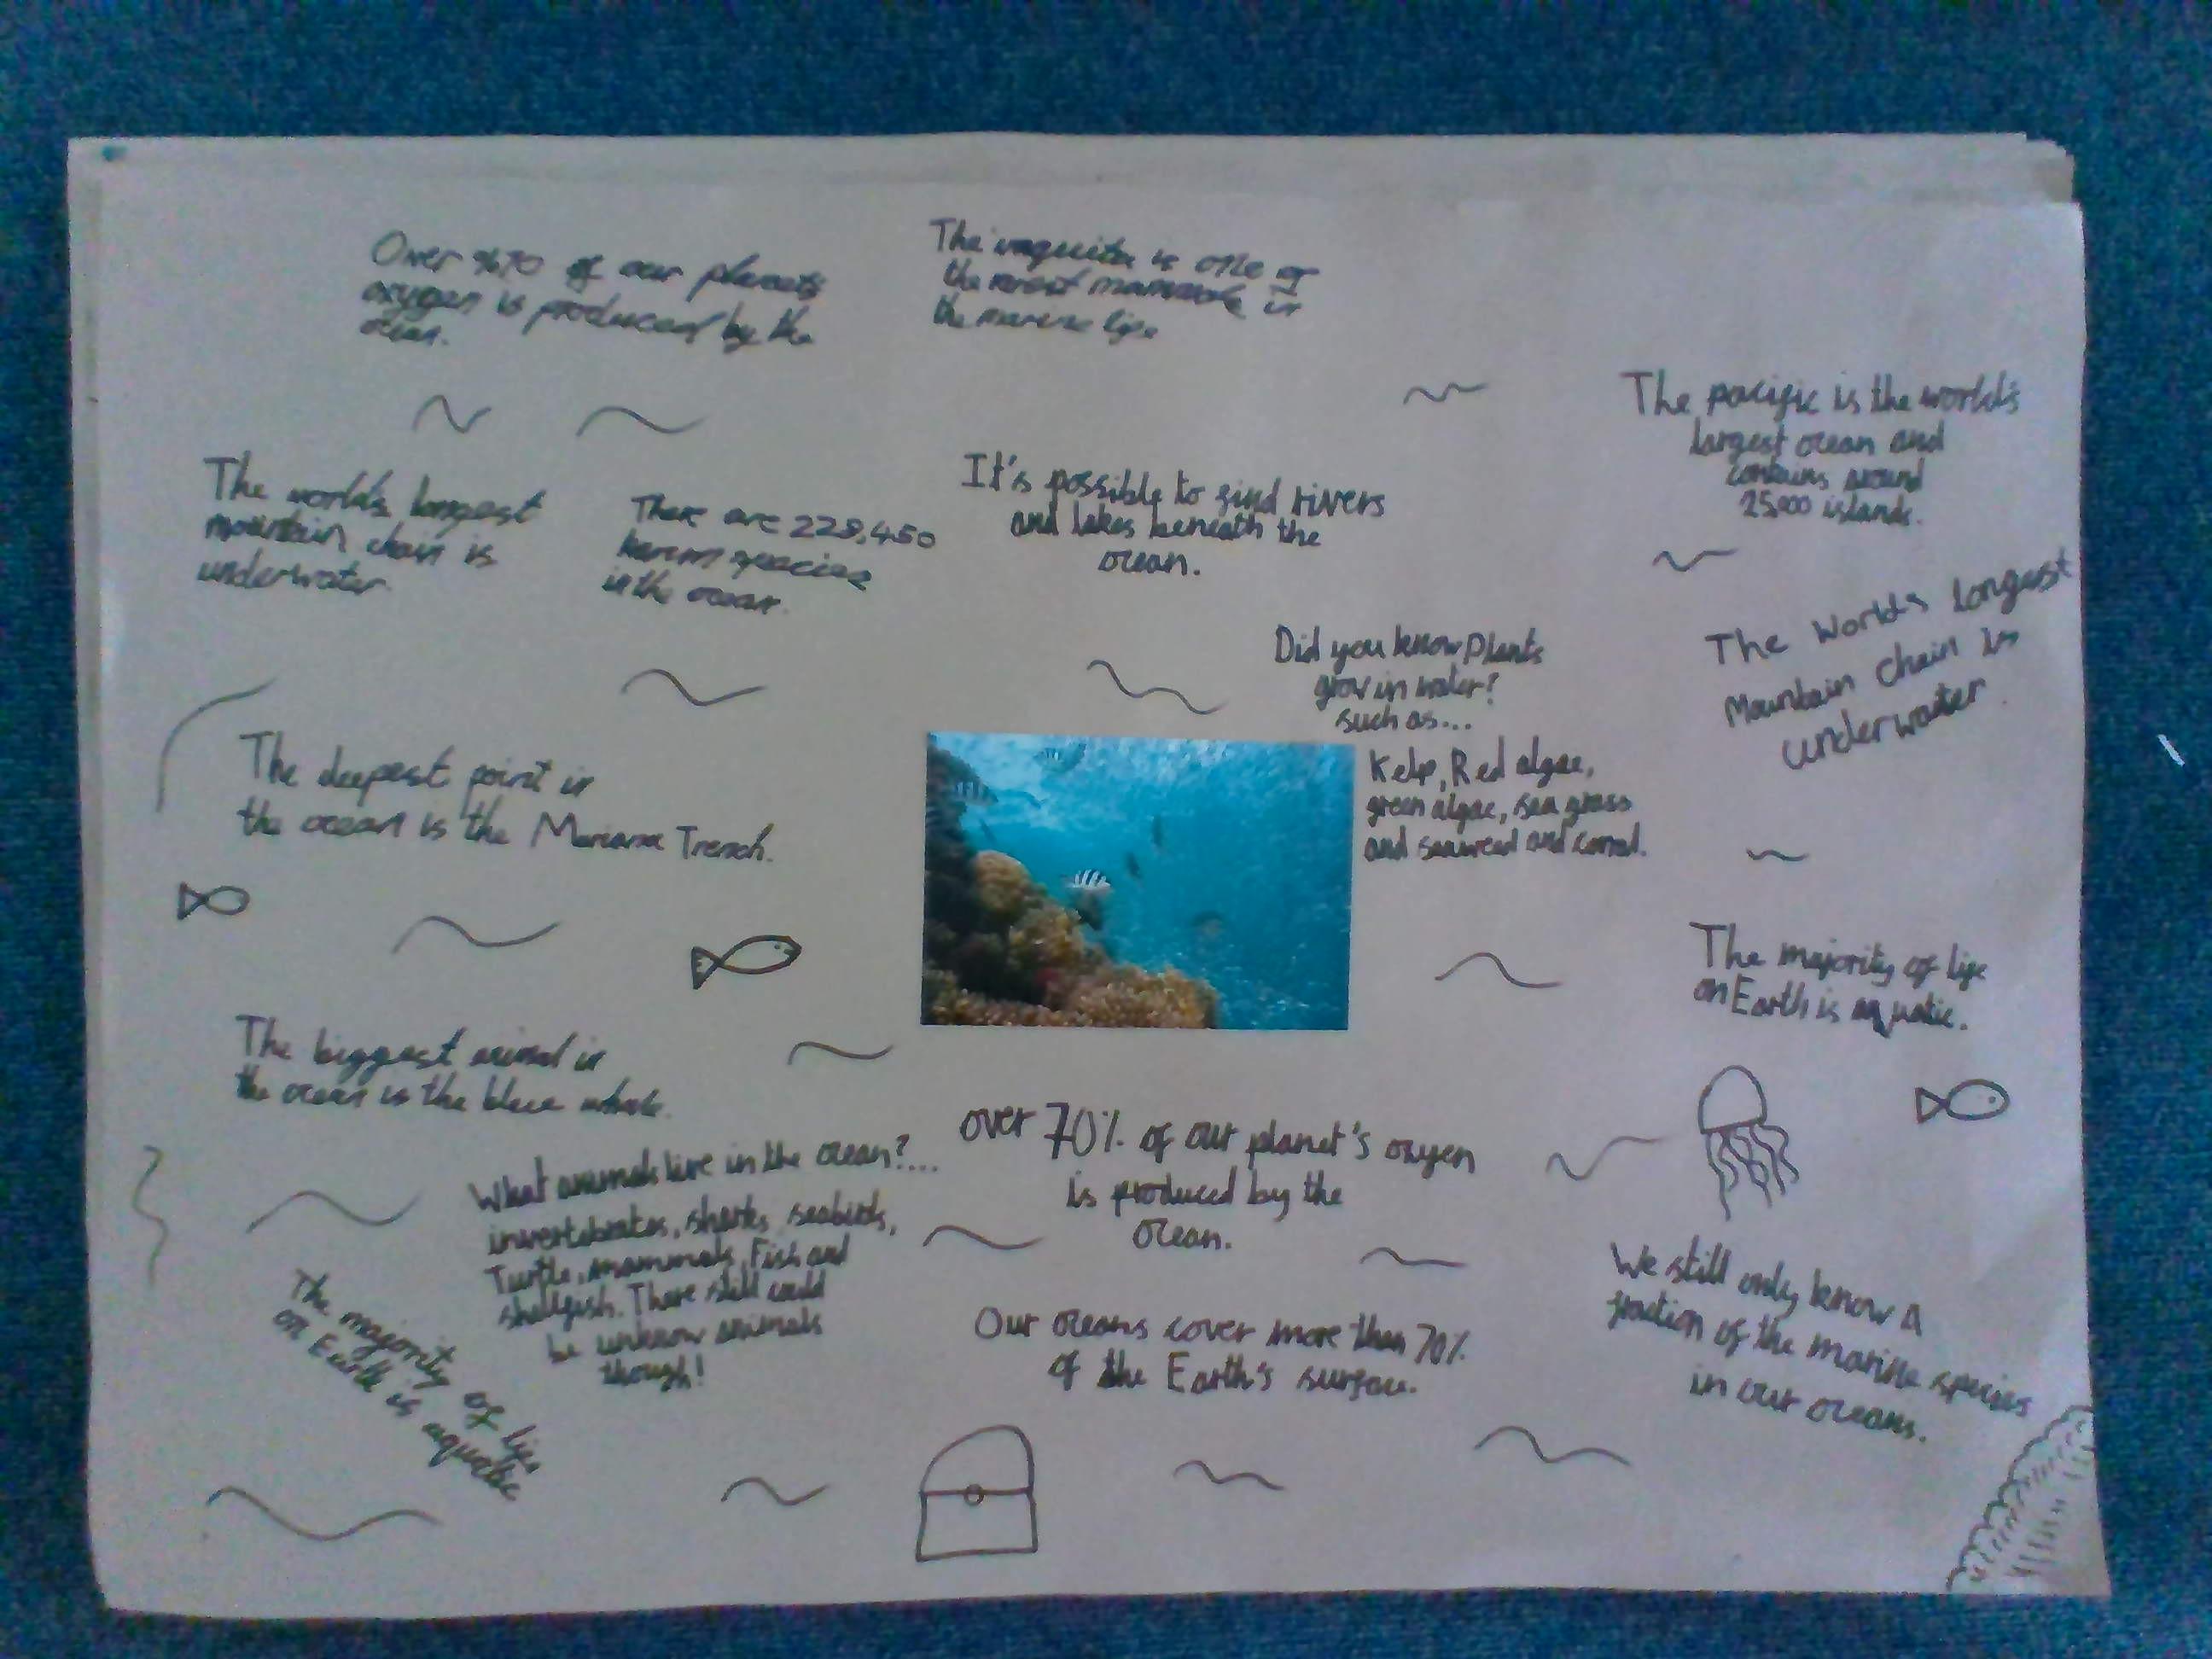 Over %70 of our planets
oxygen is produced by the
ocean.
The vaquita is one of
the rarest mammals in
the marine life
The pacific is the world's
largest ocean and
contains around
25,000 islands.
The worlds longest
mountain chain is
underwater.
There are 228,450
known species
in the ocean.
It's possible to find rivers
and lakes beneath the
ocean.
The World's longest
Mountain Chain is
underwater.
Did you know Plants
grow in water?
such as...
Kelp, Red algae,
green algae, sea grass
and seaweed and corral.
The deepest point in
the ocean is the Mariana Trench.
The majority of life
on Earth is aquatic.
The biggest animal in
the ocean is the blue whale.
over 70% of our planet's oxyen
is produced by the
ocean.
What animals live in the ocean?...
invertebrates, sharks, seabirds,
Turtle, mammals, Fish and
shellfish. There still could
be unknow animals
though!
The majority of life
on Earth is aquatic
Our oceans cover more than 70%
of the Earth's surface.
We still only know A
fraction of the marine species
in our oceans.